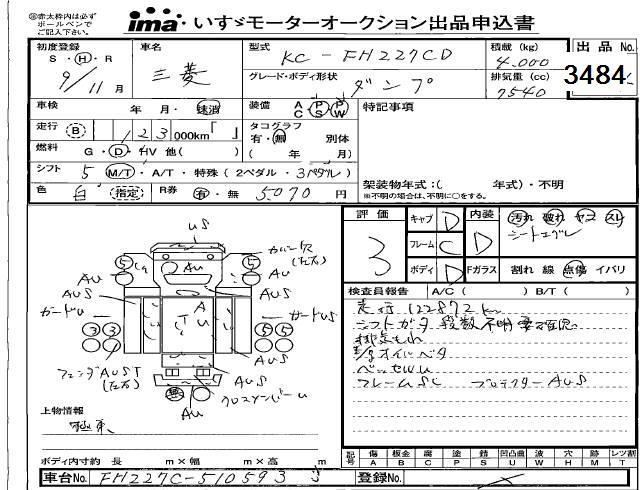 ㊟赤太枠内は必ず
ボールペンで
ご記入下さい。
ima いすゞモーターオークション出品申込書
初度登録
S・H・R
9/11月
車名
三菱
型式
KC-FH227CD
グレード・ボディ形状
ダンプ
積載 (kg)
4,000
排気量 (cc)
7540
出品 No.
3484
車検 年・月・速消
装備 A C P S P W
特記事項
走行 B 123 000km「 」
タコグラフ
有・無 別体
( 年 月)
燃料 G・D・HV 他( )
シフト 5 M/T・A/T・特殊 (2ペダル・3ペダル)
架装物年式:( 年式)・不明
※不明の場合は、不明に○をする。
色 白 (指定) R券 有・無 5070 円
評価
3
キャブ D
フレーム C
ボディ D
内装
D
汚れ 破れ ヤニ スレ
シートエグレ
Fガラス 割れ 線 点傷 イバリ
検査員報告 A/C ( ) B/T ( )
走行122872km
シフトガタ 段数不明要確認
排気もれ
E/gオイルベタ
ベッセルU
フレームSC プロテクターAUS
US
カバー欠
(左右)
AU
AUS
ガードU
ガードUS
フェンダAUST
(左右)
クロスメンバーU
5
3 3
5 5
A
U
上物情報
極東
ボディ内寸約 長 m×幅 m×高 m
記号 傷 A 板金 B 腐 C 塗 P 錆 S 凹凸曲 U 波 W 穴 H 跡 M レツ割 T
車台No. FH227C-510593
登録No.